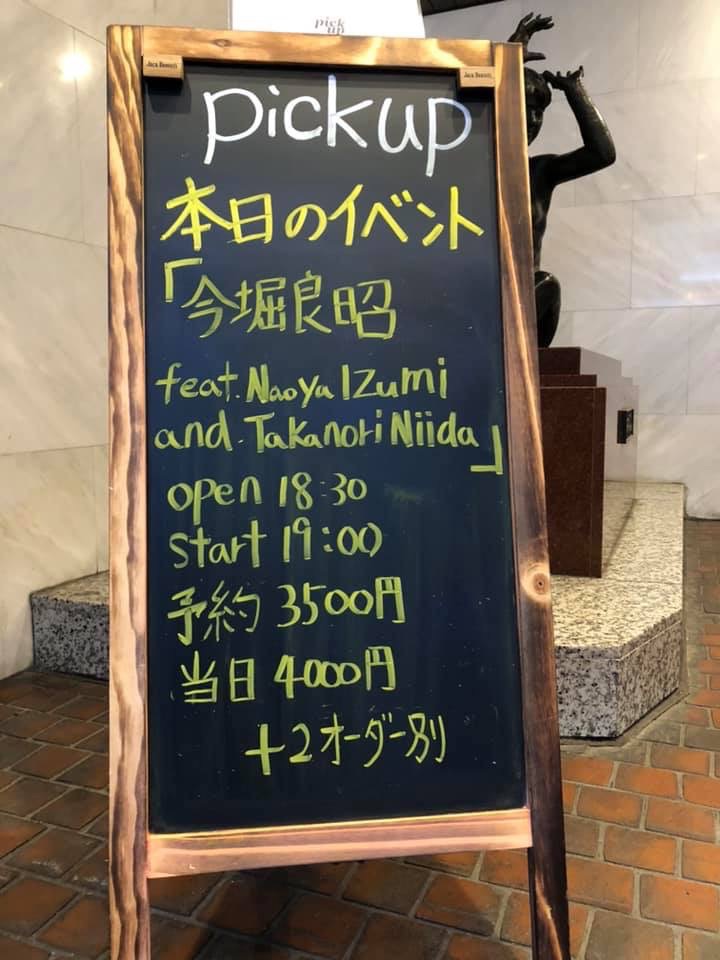 pick
up
Jack Bennett Jack Bennett
pickup
本日のイベント
「今堀良昭
feat. Naoya Izumi
and. Takanori Niida」
open 18:30
Start 19:00
予約 3500円
当日 4000円
+2オーダー別